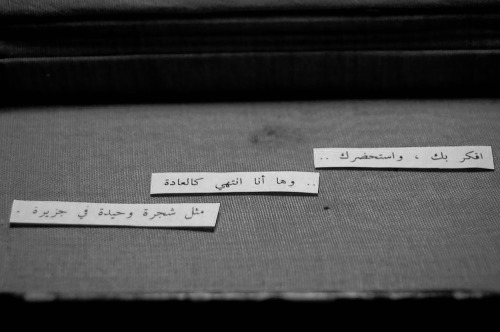 افكر بك ، واستحضرك ..
.. وها أنا انتهي كالعادة
مثل شجرة وحيدة في جزيرة .